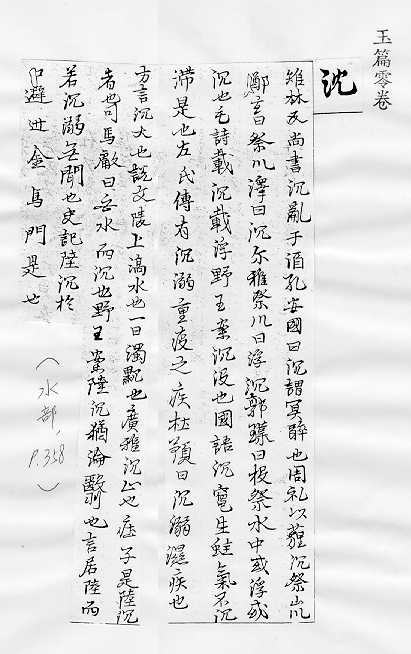 玉篇零卷
沈
雉林反尚書沉亂于酒孔安國曰沉謂冥醉也周礼以薶沉祭山川
鄭玄曰祭川澤曰沉尓雅祭川曰浮沉郭璞曰投祭水中或浮或
沉也毛詩載沉載浮野王案沉没也國語沉竃生鼃氣不沉
滯是也左氏傳有沉溺重膇之疾杜預曰沉溺濕疾也
方言沉大也說文陵上滈水也一曰濁黕也廣雅沉止也莊子是陸沉
者也司馬彪曰无水而沉也野王案陸沉猶淪翳也言居陸而
若沉溺无聞也史記陸沉於
中避世金馬門是也
（水部, P.358）